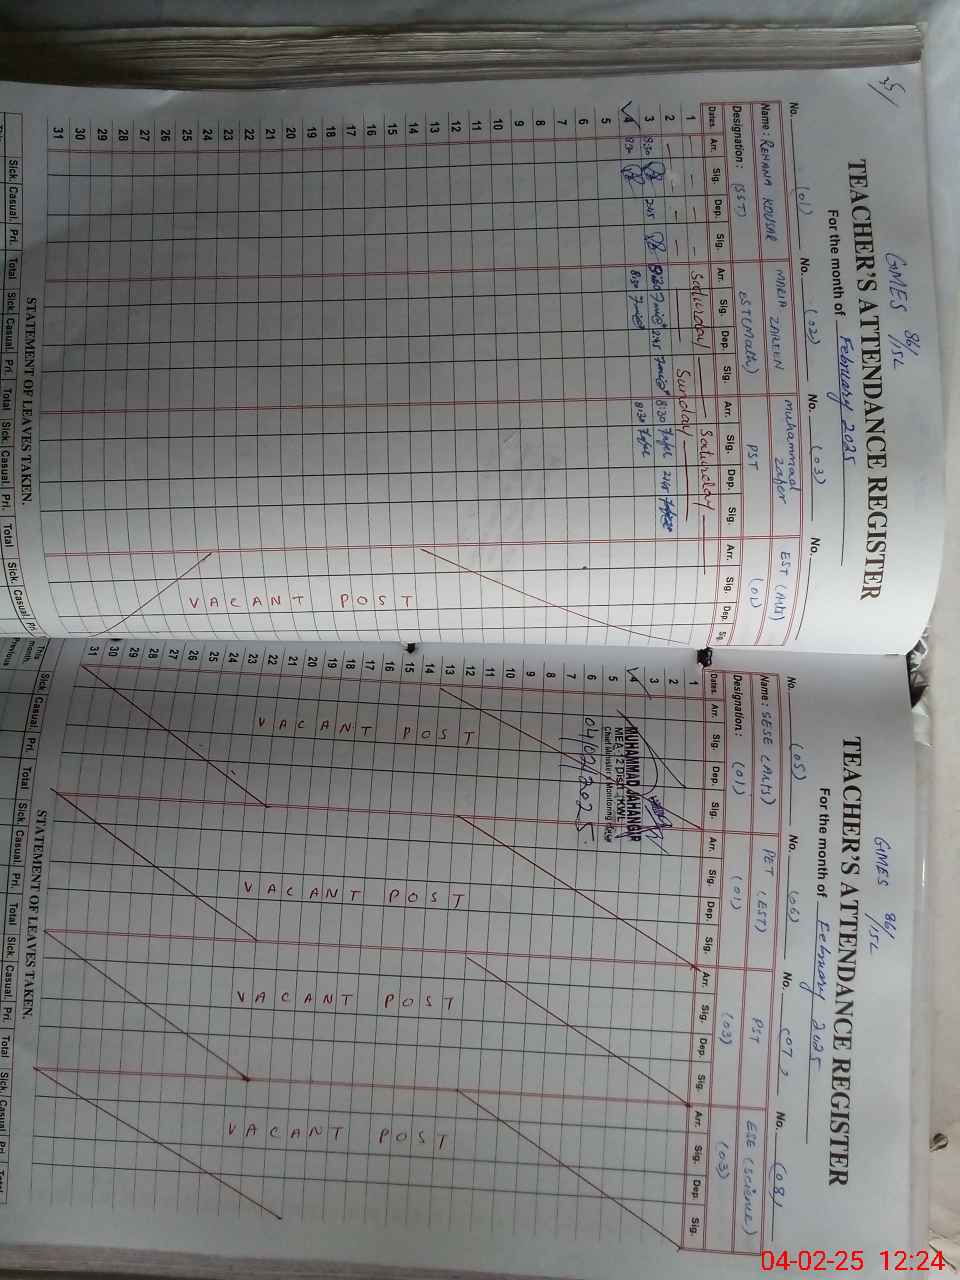 35/
GMES 86/15L
TEACHER'S ATTENDANCE REGISTER
For the month of February 2025
No. (01) No. (02) No. (03) No.
Name: REHANA KOUSAR MARIA ZAREEN Muhammad Zafar EST (Arts)
Designation: (SST) EST(Math) PST (01)
Dates Arr. Sig. Dep. Sig. Arr. Sig. Dep. Sig. Arr. Sig. Dep. Sig. Arr. Sig. Dep. Sig.
1 Saturday Saturday
2 Sunday
3 8:30 2:45 8:30 2:45 8:30 2:45
4 8:30 8:30 8:30
5
6
7
8
9
10
11
12
13
14
15
16
17
18
19
20
21
22
23
24
25
26
27
28
29
30
31
VACANT POST
STATEMENT OF LEAVES TAKEN.
Sick. Casual. Pri. Total Sick. Casual. Pri. Total Sick. Casual. Pri. Total Sick. Casual. Pri.
GMES 86/15L
TEACHER'S ATTENDANCE REGISTER
For the month of February 2025
No. (05) No. (06) No. (07) No. (08)
Name: SESE (Arts) PET (EST) PST ESE (Science)
Designation: (01) (01) (03) (03)
Dates Arr. Sig. Dep. Sig. Arr. Sig. Dep. Sig. Arr. Sig. Dep. Sig. Arr. Sig. Dep. Sig.
1
2
3
4
5
6
7
8
9
10
11
12
13
14
15
16
17
18
19
20
21
22
23
24
25
26
27
28
29
30
31
MUHAMMAD JAHANGIR
MEA-12 Distt. KWL
Chief Minister's Monitoring
04/02/2025.
VACANT POST
VACANT POST
VACANT POST
VACANT POST
STATEMENT OF LEAVES TAKEN.
Sick. Casual. Pri. Total Sick. Casual. Pri. Total Sick. Casual. Pri. Total Sick. Casual. Pri. Total
This month
Previous
04-02-25 12:24